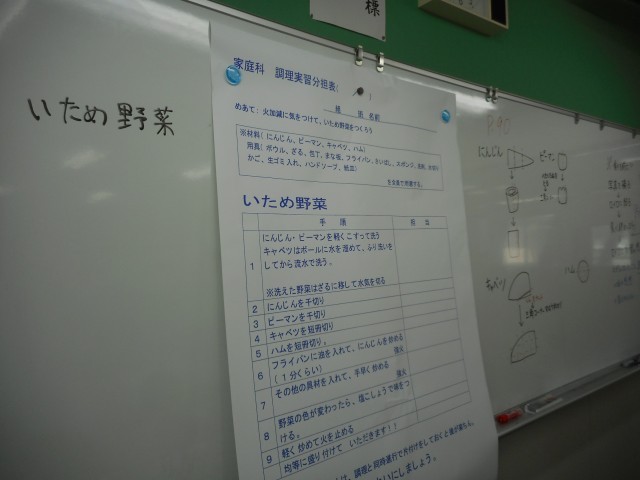 標
いため野菜
家庭科 調理実習分担表(
班 名前
めあて:火加減に気をつけて、いため野菜をつくろう
※材料(にんじん、ピーマン、キャベツ、ハム)
用具(ボウル、ざる、包丁、まな板、フライパン、さいばし、
かご、生ゴミ入れ、ハンドソープ、
いため野菜
手順
1 にんじん・ピーマンを軽くこすって洗う
キャベツはボールに水を溜めて、ふり洗いを
してから流水で洗う。
※洗えた野菜はざるに移して水気を切る
2 にんじんを千切り
3 ピーマンを千切り
4 キャベツを短冊切り
5 ハムを短冊切り。
6 フライパンに油を入れて、にんじんを炒める
(1分くらい) 強火
7 その他の具材を入れて、手早く炒める
強火
8 野菜の色が変わったら、塩こしょうで味をつ
ける。
9 軽く炒めて火を止める
均等に盛り付けて いただきます!!
調理と同時進行で片付けをしておくと
にしましょう。
P.90
にんじん
ピーマン
キャベツ
ハム